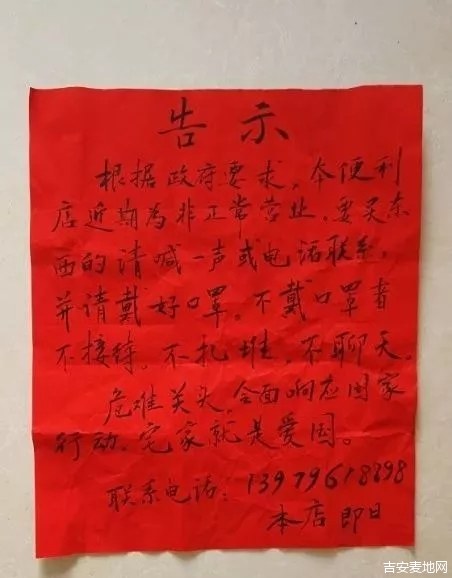 告示
根据政府要求，本便利
店近期为非正常营业，要买东
西的请喊一声或电话联系，
并请戴好口罩。不戴口罩者
不接待。不扎堆，不聊天。
危难关头，全面响应国家
行动，宅家就是爱国。
联系电话：13979618898
本店 即日
吉安麦地网